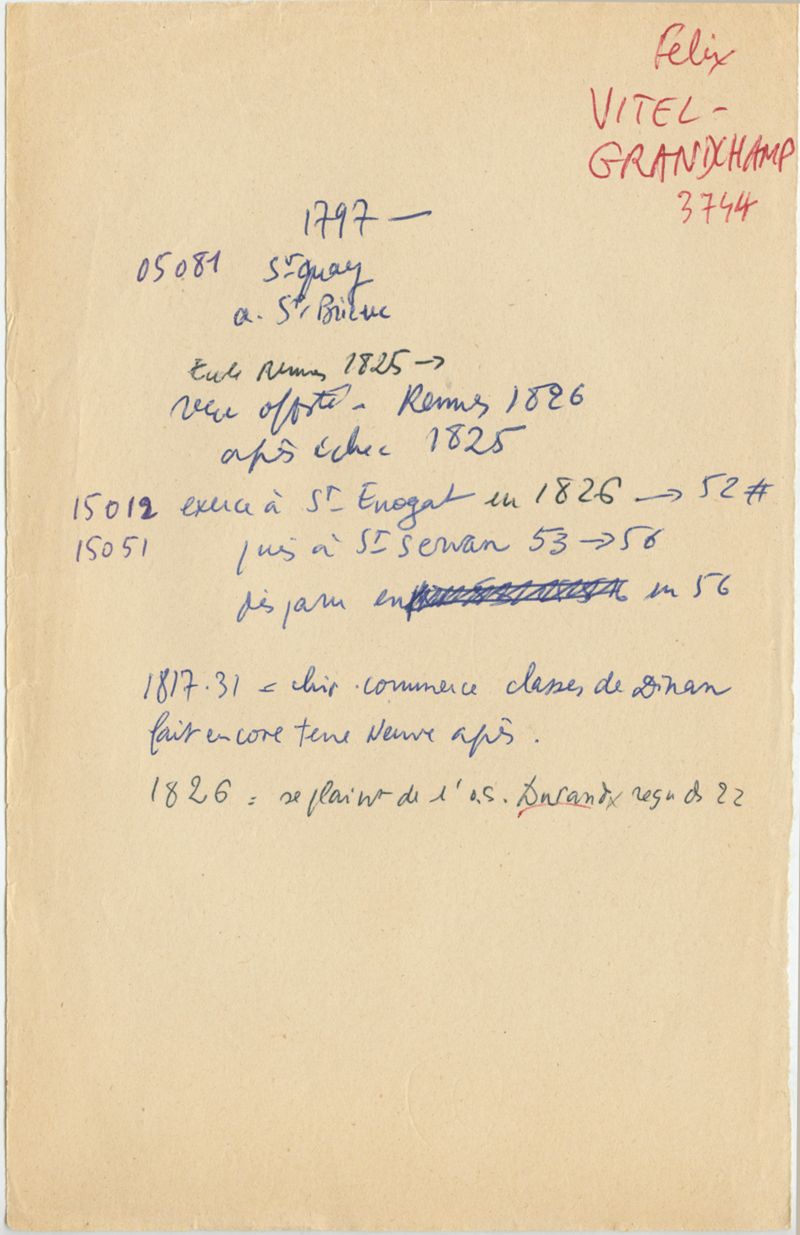 Felix
VITEL-
GRANDCHAMP
3744
1797 —
05081 St Quay
a. St Brieuc
Ecole Rennes 1825 →
reçu off. sté - Rennes 1826
après échec 1825
15012 exerce à St Enogat en 1826 → 52 #
15051 puis à St Servan 53 → 56
disparu en en 56
1817.31 = chir. commerce classes de Dinan
fait encore terre Neuve après.
1826 = se plaint de l'o.s. Durand reçu ds 22